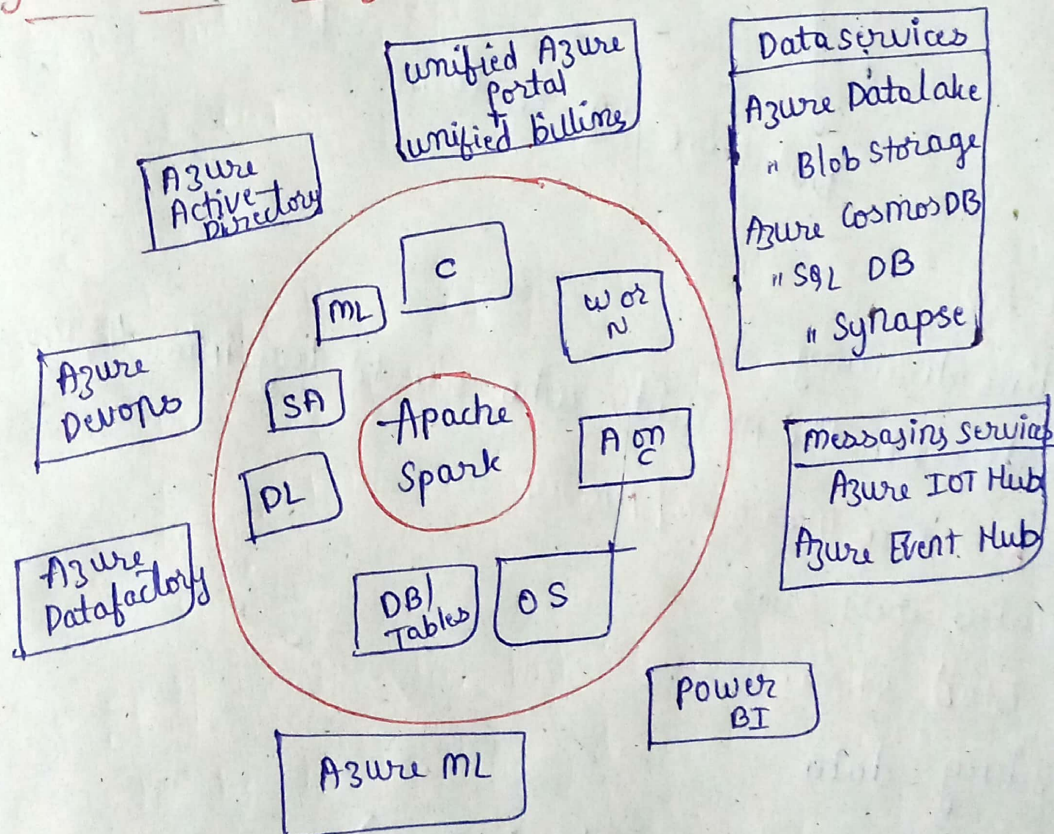 unified Azure
portal
+
unified billing
Dataservices
Azure Datalake
" Blob storage
Azure CosmosDB
" SQL DB
" Synapse
Azure
Active
Directory
C
ML
W or
N
Azure
Devops
SA
Apache
Spark
A on
C
messaging services
Azure IOT Hub
Azure Event Hub
DL
Azure
Datafactory
DB/
Tables
OS
Power
BI
Azure ML